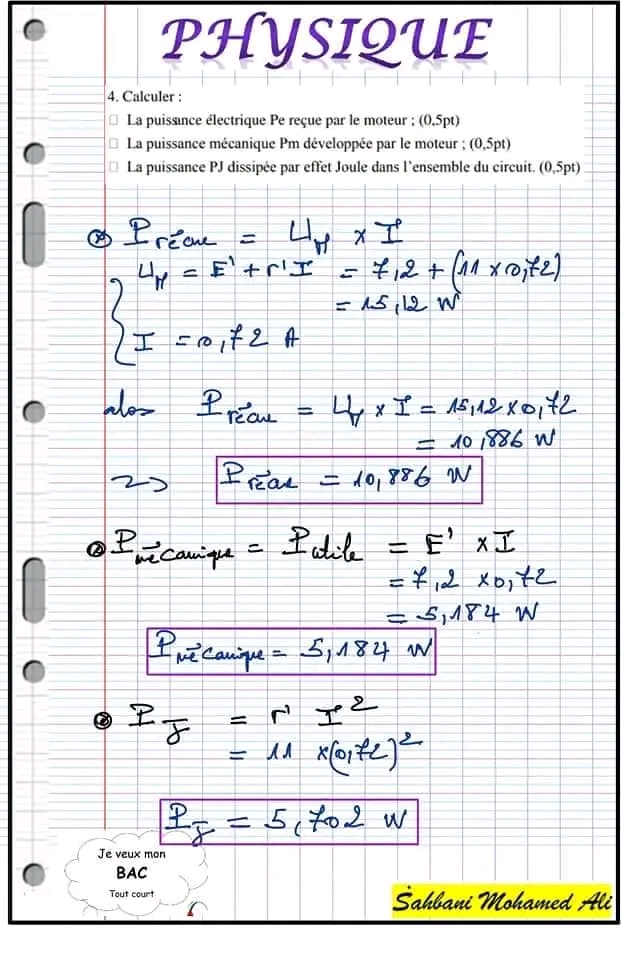 PHYSIQUE
4. Calculer :
□ La puissance électrique Pe reçue par le moteur ; (0,5pt)
□ La puissance mécanique Pm développée par le moteur ; (0,5pt)
□ La puissance PJ dissipée par effet Joule dans l'ensemble du circuit. (0,5pt)
P reçue = U_M x I
U_M = E' + r'I = 7,2 + (11 x 0,72)
= 15,12 W
I = 0,72 A
alors P reçue = U_M x I = 15,12 x 0,72
= 10,886 W
=> P reçue = 10,886 W
P mécanique = P utile = E' x I
= 7,2 x 0,72
= 5,184 W
P mécanique = 5,184 W
P_J = r' I²
= 11 x (0,72)²
P_J = 5,702 W
Je veux mon
BAC
Tout court
Sahbani Mohamed Ali